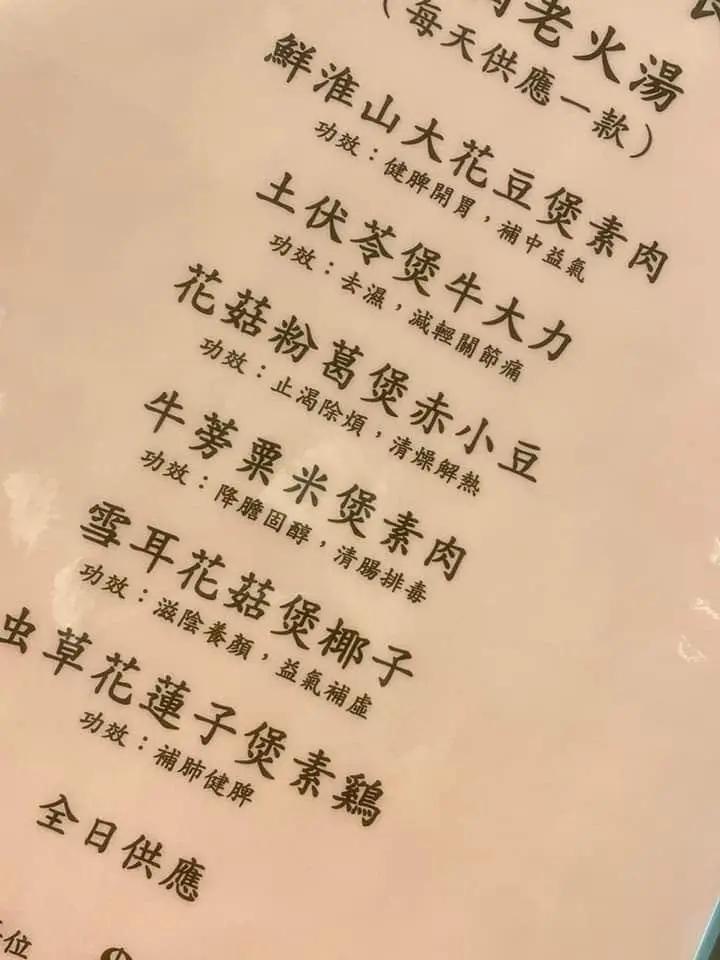 老火湯
（每天供應一款）
鮮淮山大花豆煲素肉
功效：健脾開胃，補中益氣
土伏苓煲牛大力
功效：去濕，減輕關節痛
花菇粉葛煲赤小豆
功效：止渴除煩，清燥解熱
牛蒡粟米煲素肉
功效：降膽固醇，清腸排毒
雪耳花菇煲椰子
功效：滋陰養顏，益氣補虛
虫草花蓮子煲素鷄
功效：補肺健脾
全日供應
位 $